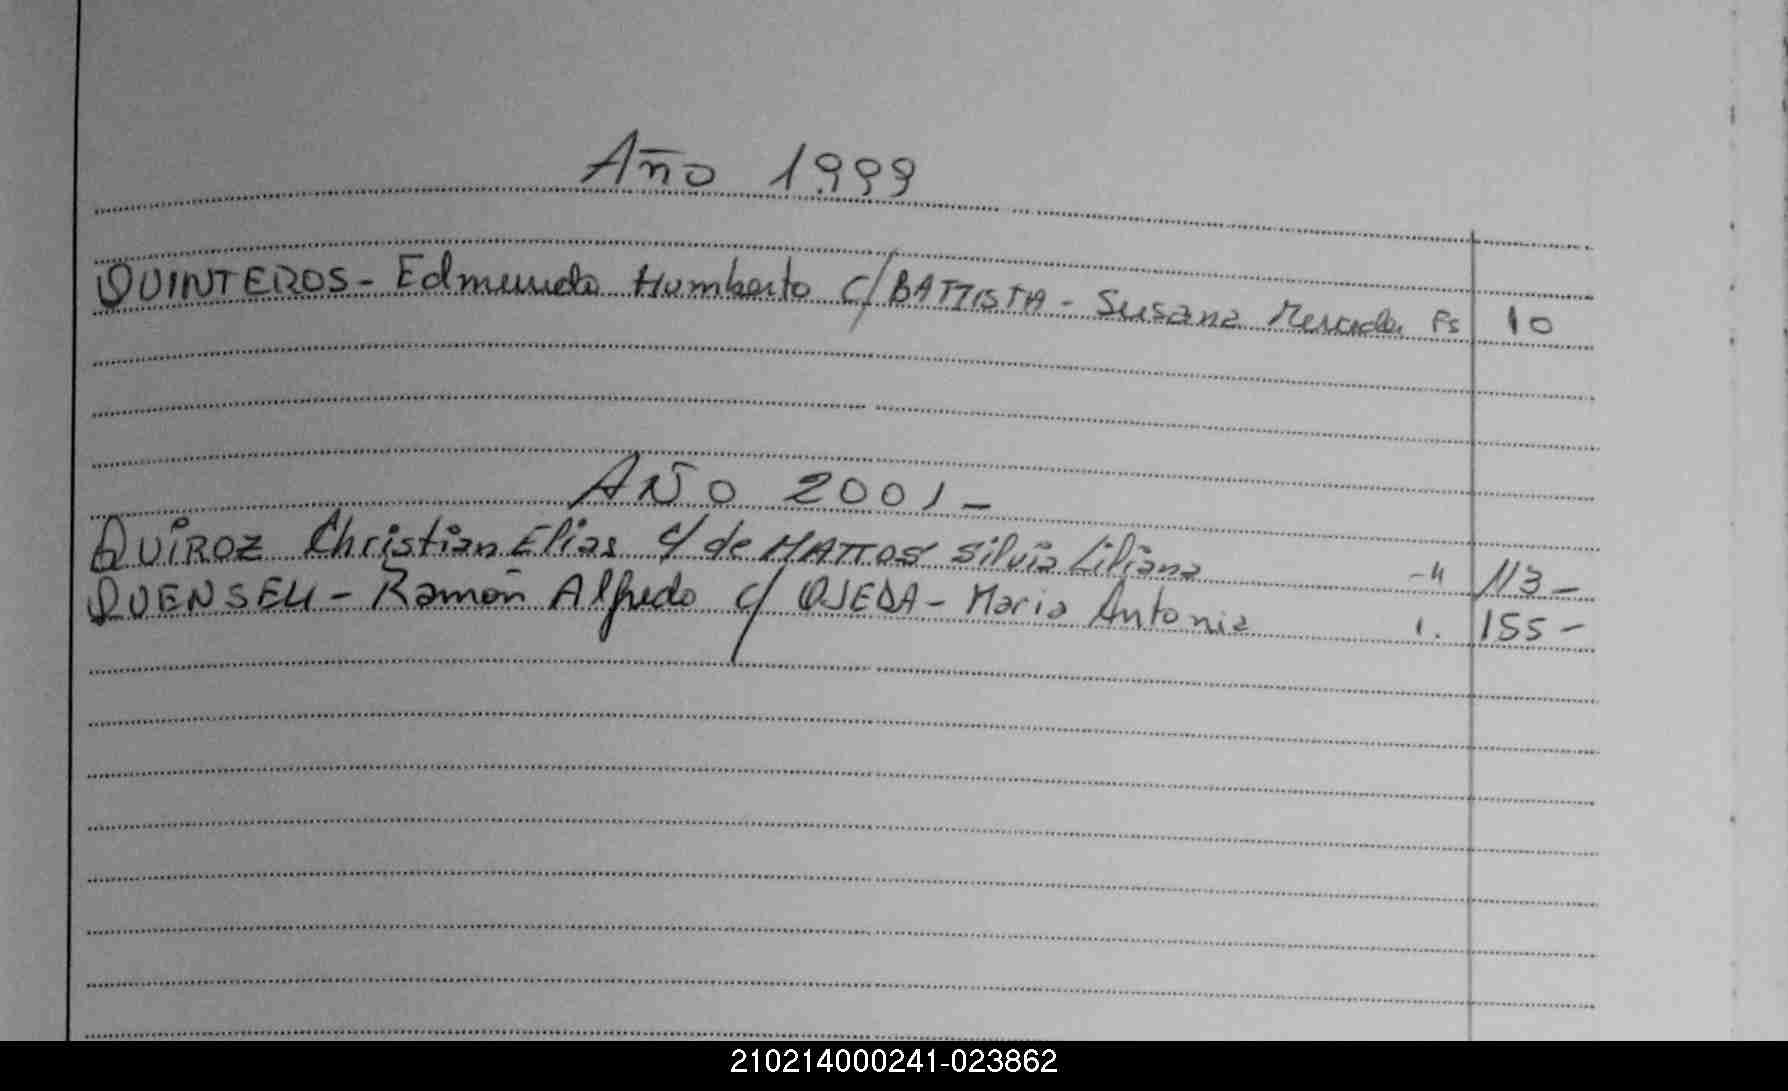 Año 1999
QUINTEROS - Edmundo Humberto c/ BATTISTA - Susana Mercedes Fs 10
AÑO 2001 -
QUIROZ Christian Elias c/ de MATTOS Silvia Liliana -" 113 -
- Ramón Alfredo c/ OJEDA - Maria Antonia 155 -
210214000241-023862